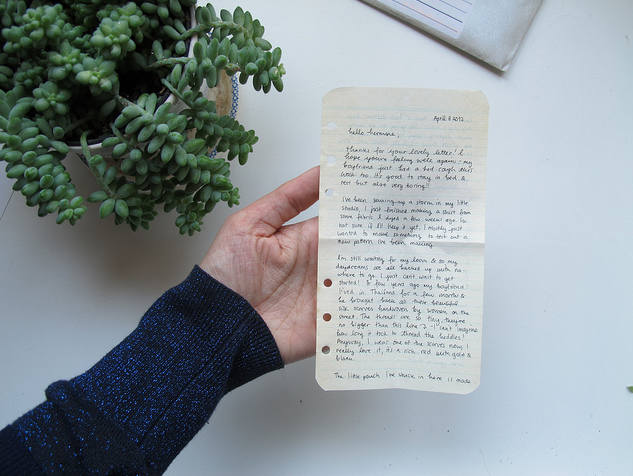 April 8 2012
hello hermine,
thanks for your lovely letter! I
hope you're feeling well again - my
boyfriend just had a bad cough this
week too. It's good to stay in bed &
rest but also very boring!!
I've been sewing up a storm in my little
studio, I just finished making a skirt from
some fabric I dyed a few weeks ago. I'm
not sure if I'll keep it yet. I mostly just
wanted to make something to test out a
new pattern I've been making
I'm still waiting for my loom & so my
daydreams are all backed up with no-
where to go. I just can't wait to get
started! A few years ago my boyfriend
lived in Thailand for a few months &
he brought back all these beautiful
silk scarves handwoven by women on the
street. The threads are so tiny, they're
no bigger than this line → - I can't imagine
how long it took to thread the heddles!
Anyway, I wear one of the scarves now, I
really love it, it's a rich red with gold &
black.
The little pouch I've stuck in here is made